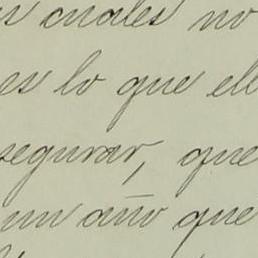 s cuales no
es lo que ell
segurar, que
un año que